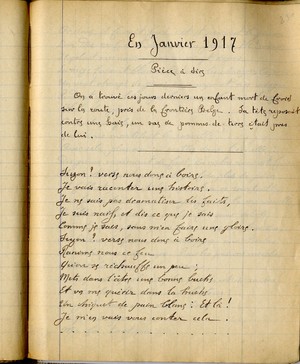 En Janvier 1917
Pièce à dire
On a trouvé ces jours derniers un enfant mort de froid
sur la route, près de la frontière Belge. Sa tête reposait
contre une haie, un sac de pommes de terre était près
de lui.
Suzon ! verse nous donc à boire.
Je vais raconter une histoire.
Je ne sais pas dramatiser les faits,
Je suis naïf, et dis ce que je sais
Comme je sais, sans m'en faire une gloire.
Suzon ! verse nous donc à boire
Ranime nous ce feu
Qu'on se réchauffe un peu ;
Mets dans l'âtre une bonne buche
Et va me quérir dans la huche
Un chiquet de pain blanc : Et là !
Je m'en vais vous conter cela.